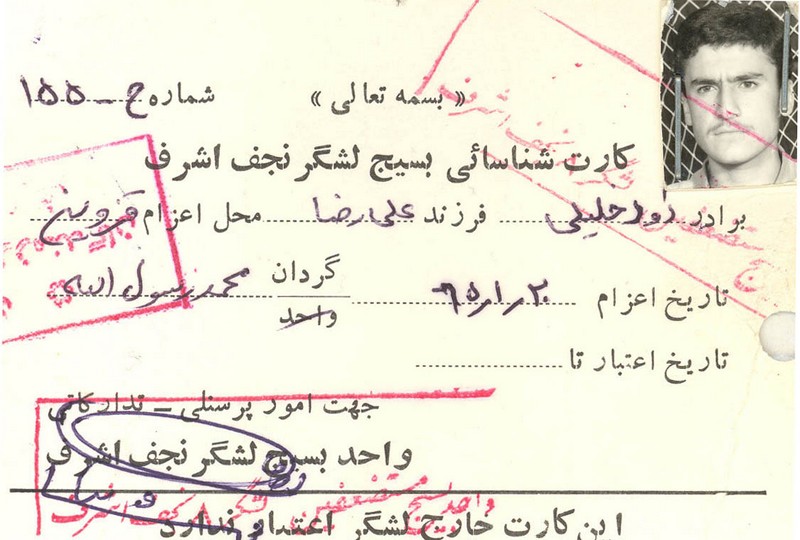 « بسمه تعالی »
شماره ح - ۱۵۵
کارت شناسائی بسیج لشگر نجف اشرف
برادر داود خلیلی فرزند علی رضا محل اعزام قزوین
تاریخ اعزام ۲۰ ر ۱ ر ۶۵ گردان محمد رسول الله
واحد
تاریخ اعتبار تا
جهت امور پرسنلی - تدارکاتی
واحد بسیج لشگر نجف اشرف
این کارت خارج لشگر اعتبار ندارد